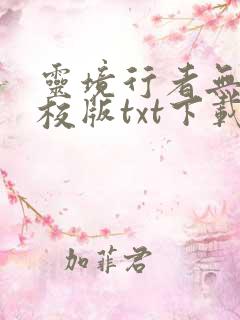 靈境行者無
校版txt下載
加菲君